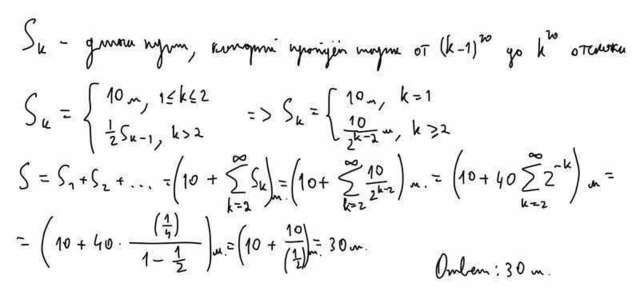 S_k - длина пути, который пройдёт шарик от (k-1)^го до k^го отскока
S_k = { 10 м, 1≤k≤2 ; 1/2 S_{k-1}, k>2 => S_k = { 10 м, k=1 ; 10/2^{k-2} м, k≥2
S = S_1 + S_2 + ... = (10 + ∑_{k=2}^{∞} S_k) м. = (10 + ∑_{k=2}^{∞} 10/2^{k-2}) м. = (10 + 40 ∑_{k=2}^{∞} 2^{-k}) м =
= (10 + 40 · (1/4)/(1 - 1/2)) м. = (10 + 10/(1/2)) м. = 30 м.
Ответ: 30 м.